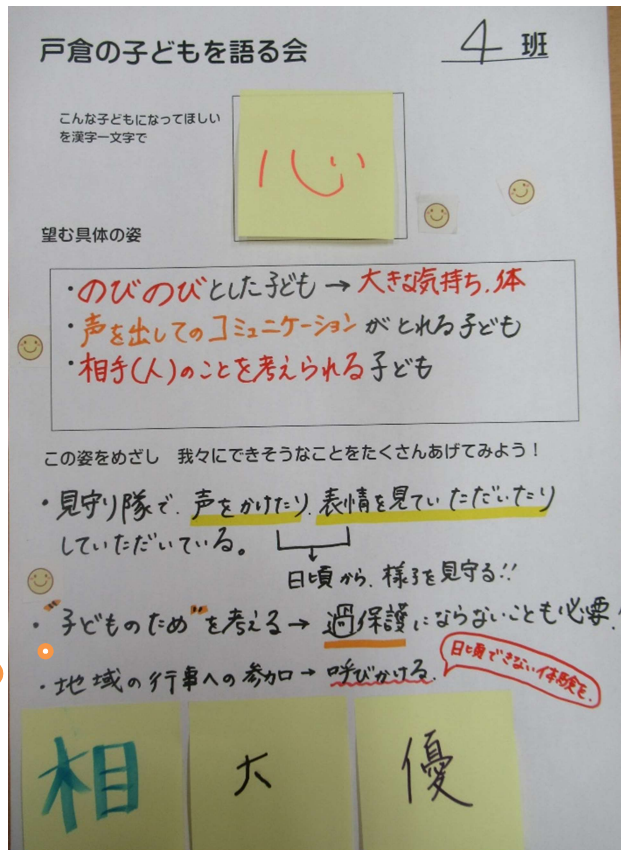 戸倉の子どもを語る会
4 班
こんな子どもになってほしい
を漢字一文字で
心
望む具体の姿
・のびのびとした子ども→大きな気持ち、体
・声を出してのコミュニケーションがとれる子ども
・相手(人)のことを考えられる子ども
この姿をめざし 我々にできそうなことをたくさんあげてみよう!
・見守り隊で、声をかけたり、表情を見ていただいたり
していただいている。
日頃から、様子を見守る!!
・"子どものため"を考える→過保護にならないことも必要!
・地域の行事への参加→呼びかける。
日頃できない体験を。
相
大
優